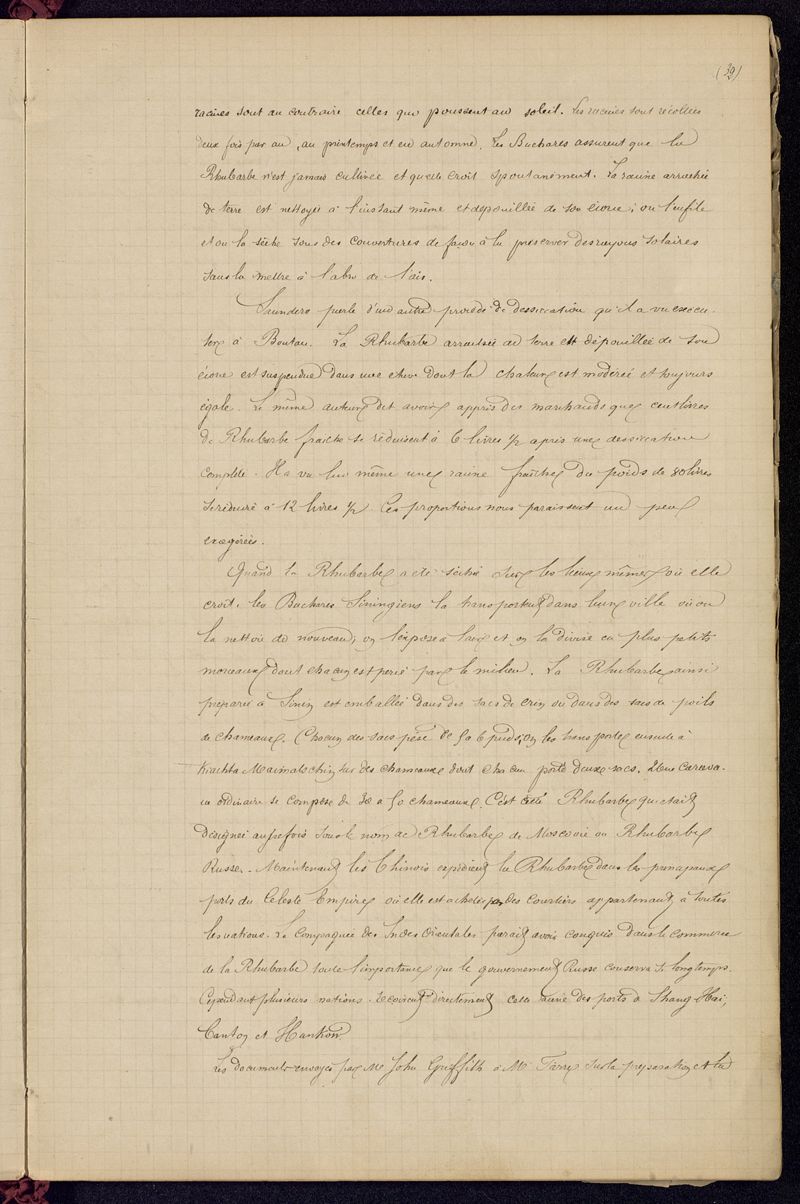 (39)
racines sont au contraire celles que poussent au soleil. Les racines sont récoltées
deux fois par an, au printemps et en automne. Les Buchares assurent que la
Rhubarbe n'est jamais cultivée et qu'elle croit spontanément. La racine arrachée
de terre est nettoyée à l'instant même et dépouillée de son écorce; on l'enfile
et on la sèche sous des couvertures de façon à la préserver des rayons solaires
sans la mettre à l'abri de l'air.
Saunders parle d'un autre procédé de dessiccation qu'il a vu exécu-
ter à Boutan. La Rhubarbe arrachée de terre et dépouillée de son
écorce est suspendue dans une étuve dont la chaleur est modérée et toujours
égale. Le même auteur dit avoir appris des marchands que cent livres
de Rhubarbe fraîche se réduisent à 6 livres 1/2 après une dessiccation
complète. Il a vu lui même une racine fraîche du poids de 80 livres
se réduire à 12 livres 1/2. Ces proportions nous paraissent un peu
exagérées.
Quand la Rhubarbe a été séchée sur les lieux mêmes où elle
croît, les Buchares Siningiens la transportent dans leur ville où on
la nettoie de nouveau; on l'expose à l'air et on la divise en plus petits
morceaux dont chacun est percé par le milieu. La Rhubarbe ainsi
préparée à Sinin est emballée dans des sacs de crin ou dans des sacs de poils
de chameaux. Chacun des sacs pèse de 5 à 6 puds; on les transporte ensuite à
Kiachta Maimatschin sur des chameaux dont chacun porte deux sacs. Une carava-
ne ordinaire se compose de 30 à 50 chameaux. C'est cette Rhubarbe qui était
désignée autrefois sous le nom de Rhubarbe de Moscovie ou Rhubarbe
Russe. Maintenant les Chinois expédient la Rhubarbe dans les principaux
ports du Celeste Empire où elle est achetée par des Courtiers appartenant à toutes
les nations. La Compagnie des Indes Orientales parait avoir conquis dans le commerce
de la Rhubarbe toute l'importance que le gouvernement Russe conserva si longtemps.
Cependant plusieurs nations reçoivent directement cette racine des ports de Shang-Hai,
Canton et Hankow.
Les documents envoyés par Mr John Griffith à Mr Farre sur la préparation et la